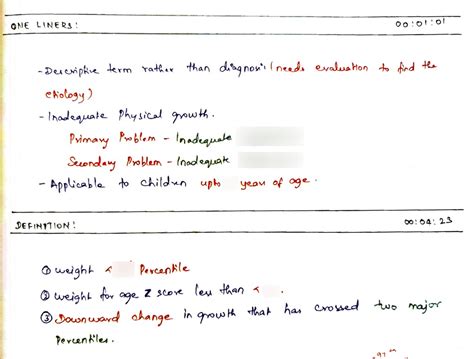 ONE LINERS: 00:01:01
- Descriptive term rather than diagnosis (needs evaluation to find the
etiology)
- Inadequate Physical growth.
Primary Problem - Inadequate
Secondary Problem - Inadequate
- Applicable to children upto years of age.
DEFINITION: 00:04:23
① weight < Percentile
② weight for age Z score less than <
③ Downward change in growth that has crossed two major
Percentiles.
97